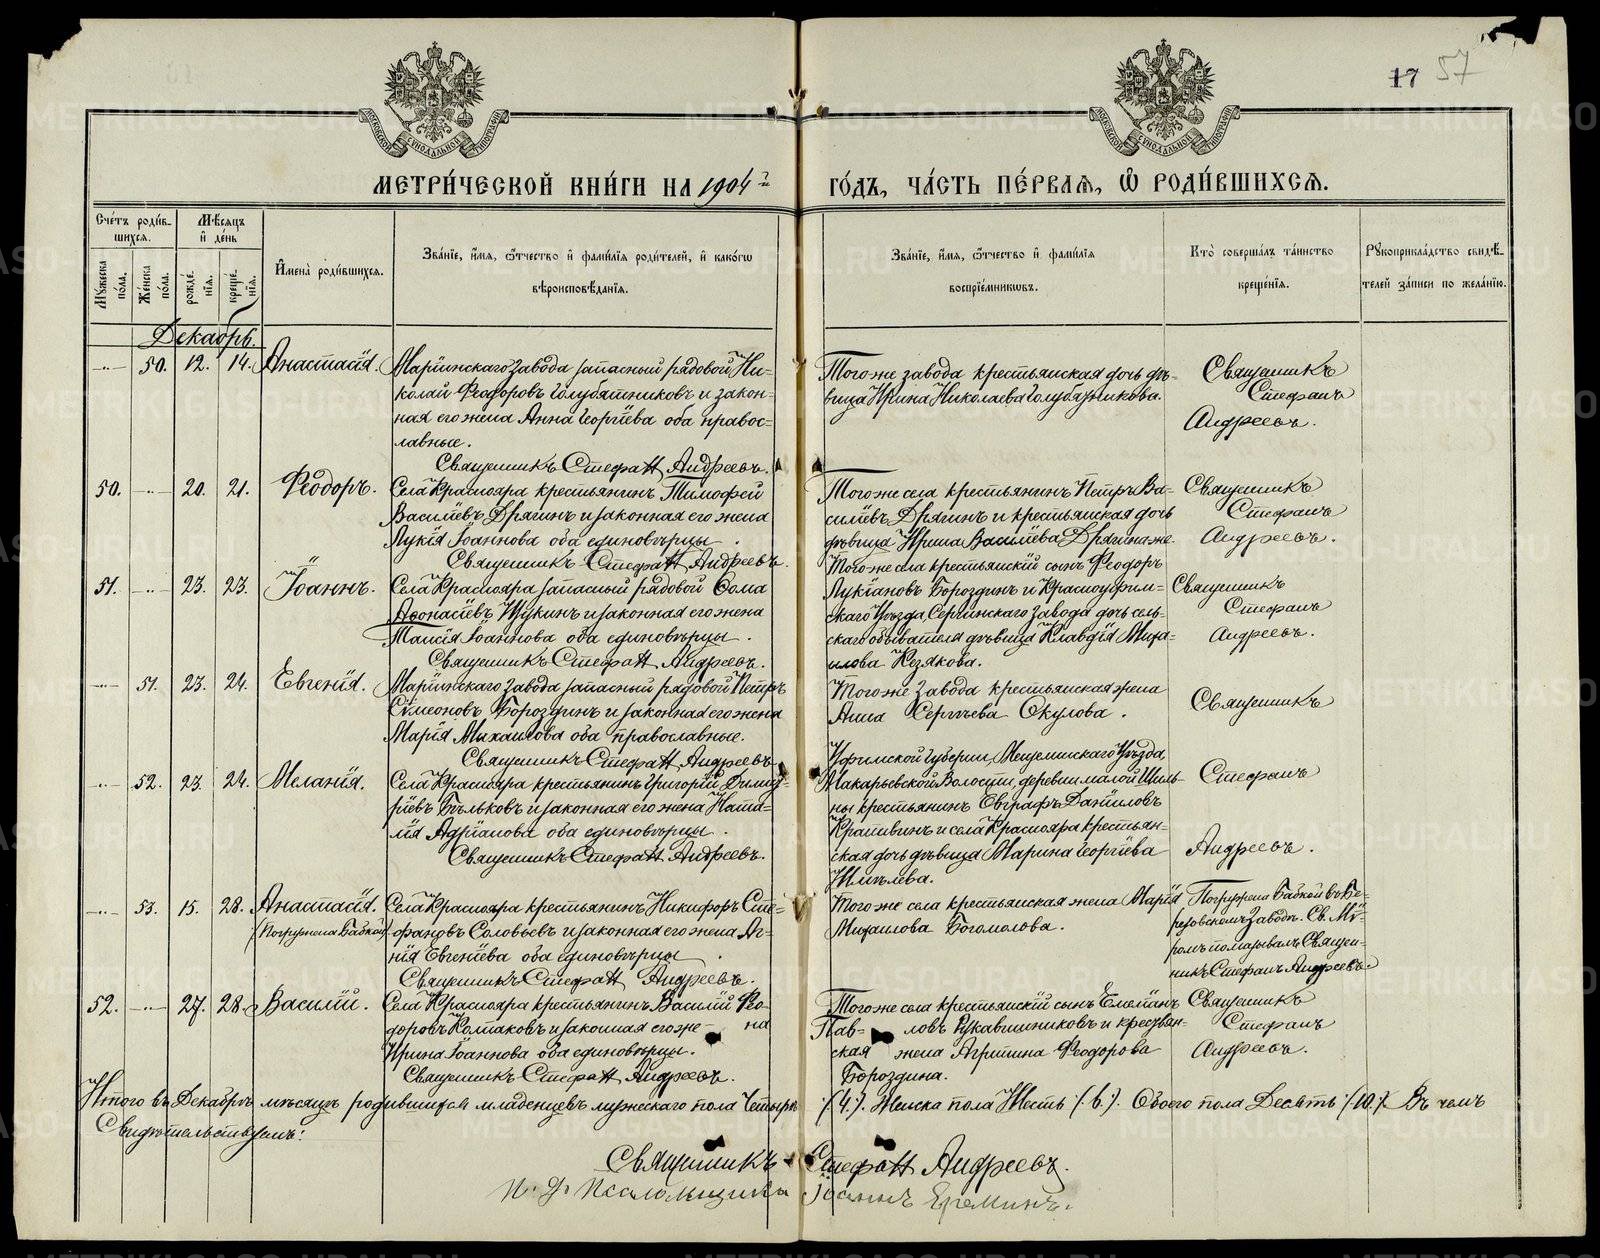 17 57
МЕТРИ́ЧЕСКОЙ КНИ́ГИ НА 1904й ГО́ДЪ, ЧА́СТЬ ПЕ́РВАѦ, Ѡ҆ РОДИ́ВШИХСѦ.
Сче́тъ роди́в-
шихсѧ.
Мѣсѧцъ
и҆ де́нь
Мꙋ́жеска по́ла.
Же́нска по́ла.
рожде́нїѧ.
креще́нїѧ.
И҆мена̀ роди́вшихсѧ.
Зва́нїе, и҆́мѧ, ѻ҆́тчество и҆ фами́лїѧ роди́телей, и҆ како́гѡ
вѣроисповѣ́данїѧ.
Зва́нїе, и҆́мѧ, ѻ҆́тчество и҆ фами́лїѧ
воспрїе́мникѡвъ.
Кто̀ соверша́лъ та́инство
креще́нїѧ.
Рꙋкоприкла́дство свидѣ́-
телей за́писи по жела́нїю.
Декабрь.
50. 12. 14. Анастасія.
Маріинскаго завода запасный рядовой Ни-
колай Ѳеодоровъ Голубятниковъ и закон-
ная его жена Анна Георгіева оба правос-
лавные.
Священникъ Стефанъ Андреевъ.
Того же завода крестьянская дочь дѣ-
вица Ирина Николаева Голубятникова.
Священникъ
Стефанъ
Андреевъ.
50. 20. 21. Ѳеодоръ.
Села Краснояра крестьянинъ Тимофей
Василіевъ Дрягинъ и законная его жена
Лукія Іоаннова оба единовѣрцы.
Священникъ Стефанъ Андреевъ.
Того же села крестьянинъ Петръ Ва-
силіевъ Дрягинъ и крестьянская дочь
дѣвица Ирина Василіева Дрягина же.
Священникъ
Стефанъ
Андреевъ.
51. 23. 23. Іоаннъ.
Села Краснояра запасный рядовой Ѳома
Аѳонасіевъ Щукинъ и законная его жена
Таисія Іоаннова оба единовѣрцы.
Священникъ Стефанъ Андреевъ.
Того же села крестьянскій сынъ Ѳеодоръ
Лукіановъ Бороздинъ и Красноуфим-
скаго Уѣзда, Сергинскаго завода дочь сель-
скаго обывателя дѣвица Клавдія Миха-
илова
Священникъ
Стефанъ
Андреевъ.
51. 23. 24. Евгенія.
Маріинскаго завода запасный рядовой Петръ
Симеоновъ Бороздинъ и законная его жена
Марія Михаилова оба православные.
Священникъ Стефанъ Андреевъ
Того же завода крестьянская жена
Анна Сергѣева Окулова.
Священникъ
52. 23. 24. Меланія.
Села Краснояра крестьянинъ Григорій Димит-
ріевъ Бѣльковъ и законная его жена Ната-
лія Адріанова оба единовѣрцы.
Священникъ Стефанъ Андреевъ.
Уфимской Губерніи, Уѣзда,
Макарьевской Волости, деревни малой
крестьянинъ Евграфъ Даніиловъ
Крапивинъ и села Краснояра крестьян-
ская дочь дѣвица Марина Георгіева
Стефанъ
Андреевъ.
53. 15. 28. Анастасія.
(Погружена Бабкой)
Села Краснояра крестьянинъ Никифоръ Сте-
фановъ Соловьевъ и законная его жена Аг-
нія Евгеніева оба единовѣрцы.
Священникъ Стефанъ Андреевъ.
Того же села крестьянская жена Марія
Михаилова Богомолова.
Погружена Бабкой въ Бе-
резовскомъ Заводѣ. Св. Мѵ-
ромъ помазывалъ Священ-
никъ Стефанъ Андреевъ.
52. 27. 28. Василій.
Села Краснояра крестьянинъ Василій Ѳео-
доровъ Колпаковъ и законная его же-на
Ирина Іоаннова оба единовѣрцы.
Священникъ Стефанъ Андреевъ.
Того же села крестьянскій сынъ Емеліанъ
Пав-ловъ Рукавишниковъ и крестьян-
ская жена Агрипина Ѳеодорова
Бороздина.
Священникъ
Стефанъ
Андреевъ.
Итого въ Декабрѣ мѣсяцѣ родившихся младенцевъ мужескаго пола Четыре (4.). Женска пола Шесть (6.). Обоего пола Десять (10.). Въ чемъ
Свидѣтельствуемъ:
Священникъ Стефанъ Андреевъ.
и. д. псаломщика Іоаннъ Ереминъ.